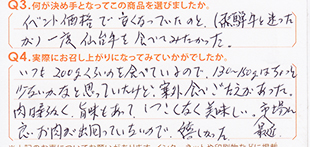 Q3.何が決め手となってこの商品を選びましたか。
イベント価格で安くなっていたのと、(飛騨牛と迷った
が)一度、仙台牛を食べてみたかった。
Q4.実際にお召し上がりになってみていかがでしたか。
いつも200gくらいのを食べているので、130〜150gはちょっと
少ないかなと思っていたけど、案外食べごたえがあった。
肉は柔らかく、旨味もあって、しつこくなく美味しい。
良いお肉が出回っていないので、嬉しかった。